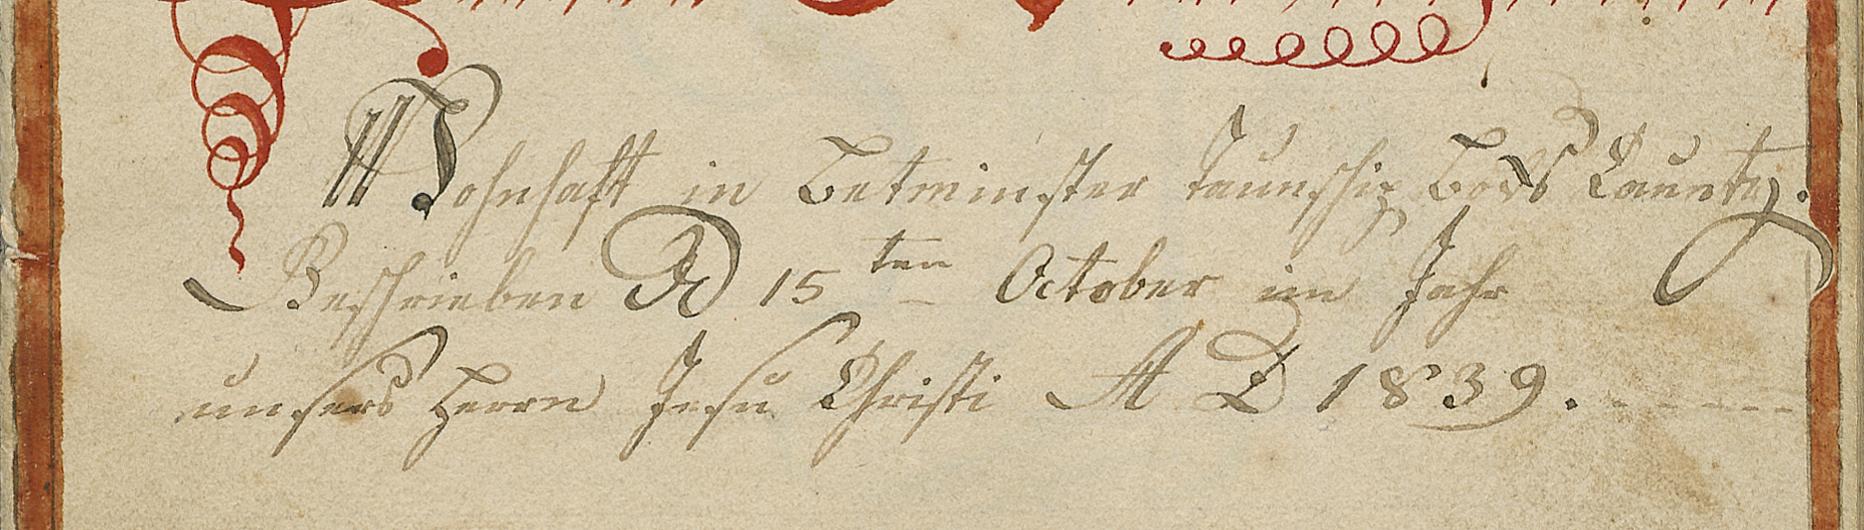 Wohnhaft in Betminster Taunship Bocks Caunty.
Beschrieben D 15ten October im Jahr
unsers Herrn Jesu Christi A D 1839.